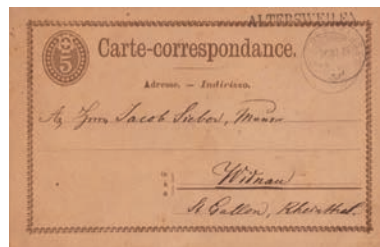 ALTERSWEILEN
5
Carte-correspondance.
Adresse. — Indirizzo.
Jacob Sieber,
Widnau
St Gallen, Rheinthal.